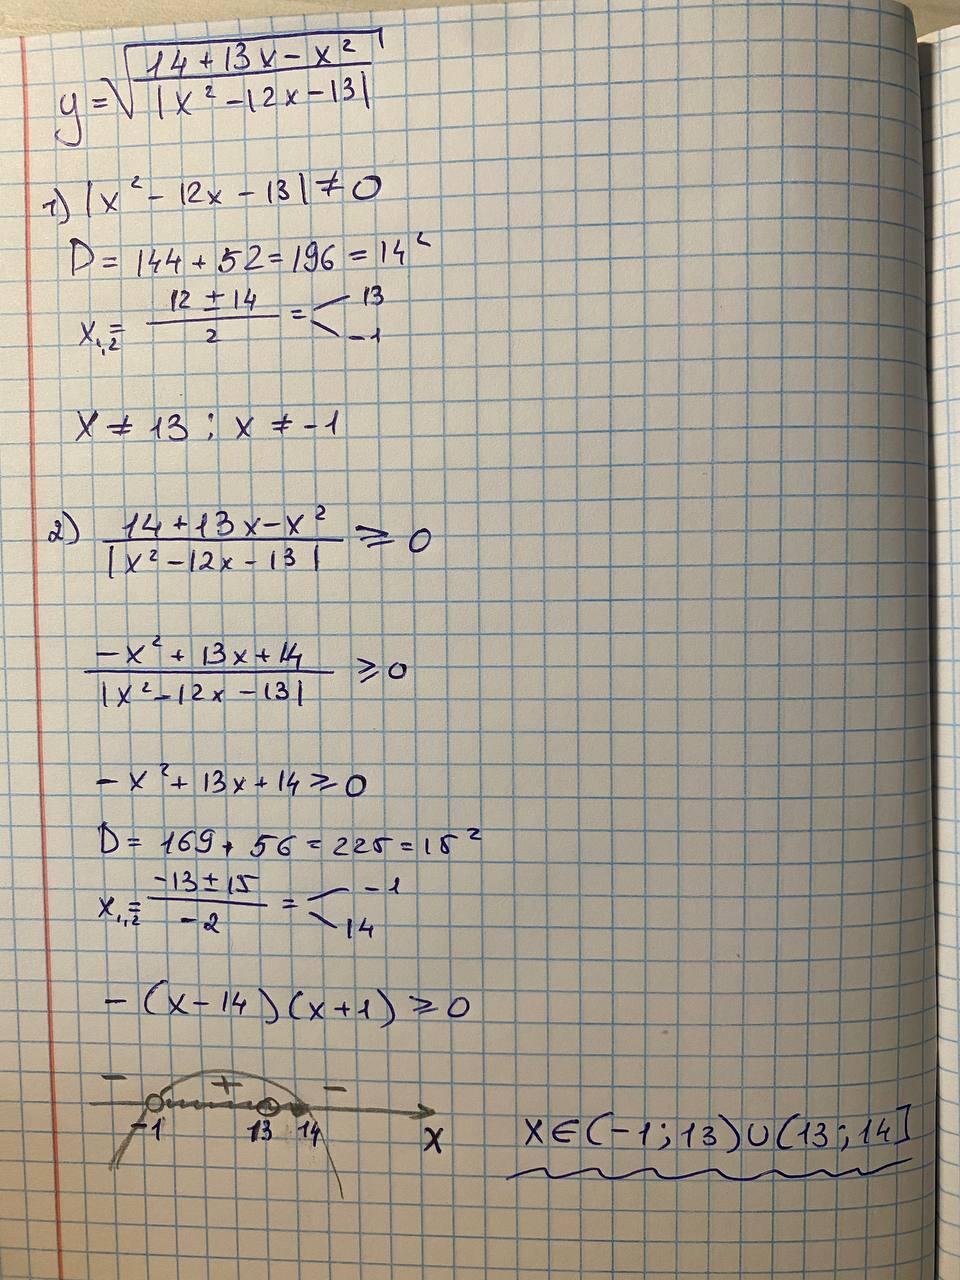 y = √((14 + 13x - x²) / |x² - 12x - 13|)
1) |x² - 12x - 13| ≠ 0
D = 144 + 52 = 196 = 14²
x₁,₂ = (12 ± 14) / 2 = < 13 -1
x ≠ 13 ; x ≠ -1
2) (14 + 13x - x²) / |x² - 12x - 13| ≥ 0
(-x² + 13x + 14) / |x² - 12x - 13| ≥ 0
-x² + 13x + 14 ≥ 0
D = 169 + 56 = 225 = 15²
x₁,₂ = (-13 ± 15) / -2 = < -1 14
-(x - 14)(x + 1) ≥ 0
- + -
-1 13 14 x
x ∈ (-1; 13) ∪ (13; 14]